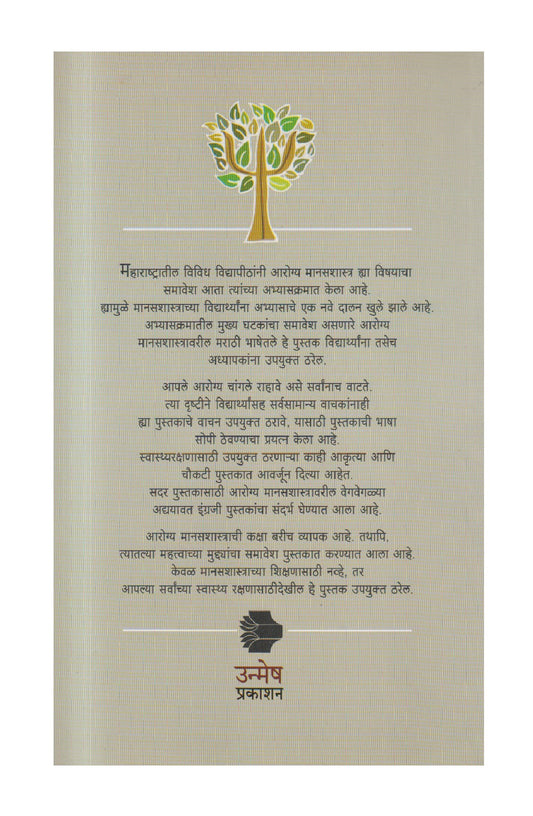 महाराष्ट्रातील विविध विद्यापीठांनी आरोग्य मानसशास्त्र ह्या विषयाचा
समावेश आता त्यांच्या अभ्यासक्रमात केला आहे.
ह्यामुळे मानसशास्त्राच्या विद्यार्थ्यांना अभ्यासाचे एक नवे दालन खुले झाले आहे.
अभ्यासक्रमातील मुख्य घटकांचा समावेश असणारे आरोग्य
मानसशास्त्रावरील मराठी भाषेतले हे पुस्तक विद्यार्थ्यांना तसेच
अध्यापकांना उपयुक्त ठरेल.
आपले आरोग्य चांगले राहावे असे सर्वांनाच वाटते.
त्या दृष्टीने विद्यार्थ्यांसह सर्वसामान्य वाचकांनाही
ह्या पुस्तकाचे वाचन उपयुक्त ठरावे, यासाठी पुस्तकाची भाषा
सोपी ठेवण्याचा प्रयत्न केला आहे.
स्वास्थ्यरक्षणासाठी उपयुक्त ठरणाऱ्या काही आकृत्या आणि
चौकटी पुस्तकात आवर्जून दिल्या आहेत.
सदर पुस्तकासाठी आरोग्य मानसशास्त्रावरील वेगवेगळ्या
अद्ययावत इंग्रजी पुस्तकांचा संदर्भ घेण्यात आला आहे.
आरोग्य मानसशास्त्राची कक्षा बरीच व्यापक आहे. तथापि,
त्यातल्या महत्त्वाच्या मुद्द्यांचा समावेश पुस्तकात करण्यात आला आहे.
केवळ मानसशास्त्राच्या शिक्षणासाठी नव्हे, तर
आपल्या सर्वांच्या स्वास्थ्य रक्षणासाठीदेखील हे पुस्तक उपयुक्त ठरेल.
उन्मेष
प्रकाशन